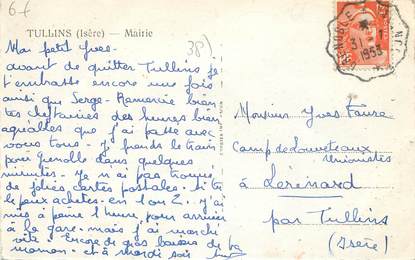 6f
38)
TULLINS (Isère) — Mairie
Mon petit Yves -
avant de quitter Tullins je
t'embrasse encore une fois
ainsi que Serge - Remercie bien
tes cheftaines des heures bien
agréables que j'ai passé avec
vous tous - Je prends le train
pour Grenoble dans quelques
minutes - Je n'ai pas trouvé
de jolies cartes postales. Si tu
le peux achetes-en 1 ou 2. J'ai
mis à peine 1 heure pour arriver
à la gare - mais j'ai marché
vite. Encore de gros baisers de ta
maman - et à mardi soir
GRENOBLE
31 - 1
1953
Monsieur Yves Faure
Camp de Louveteaux
Unionistes
à Lerenard
par Tullins
(Isère)